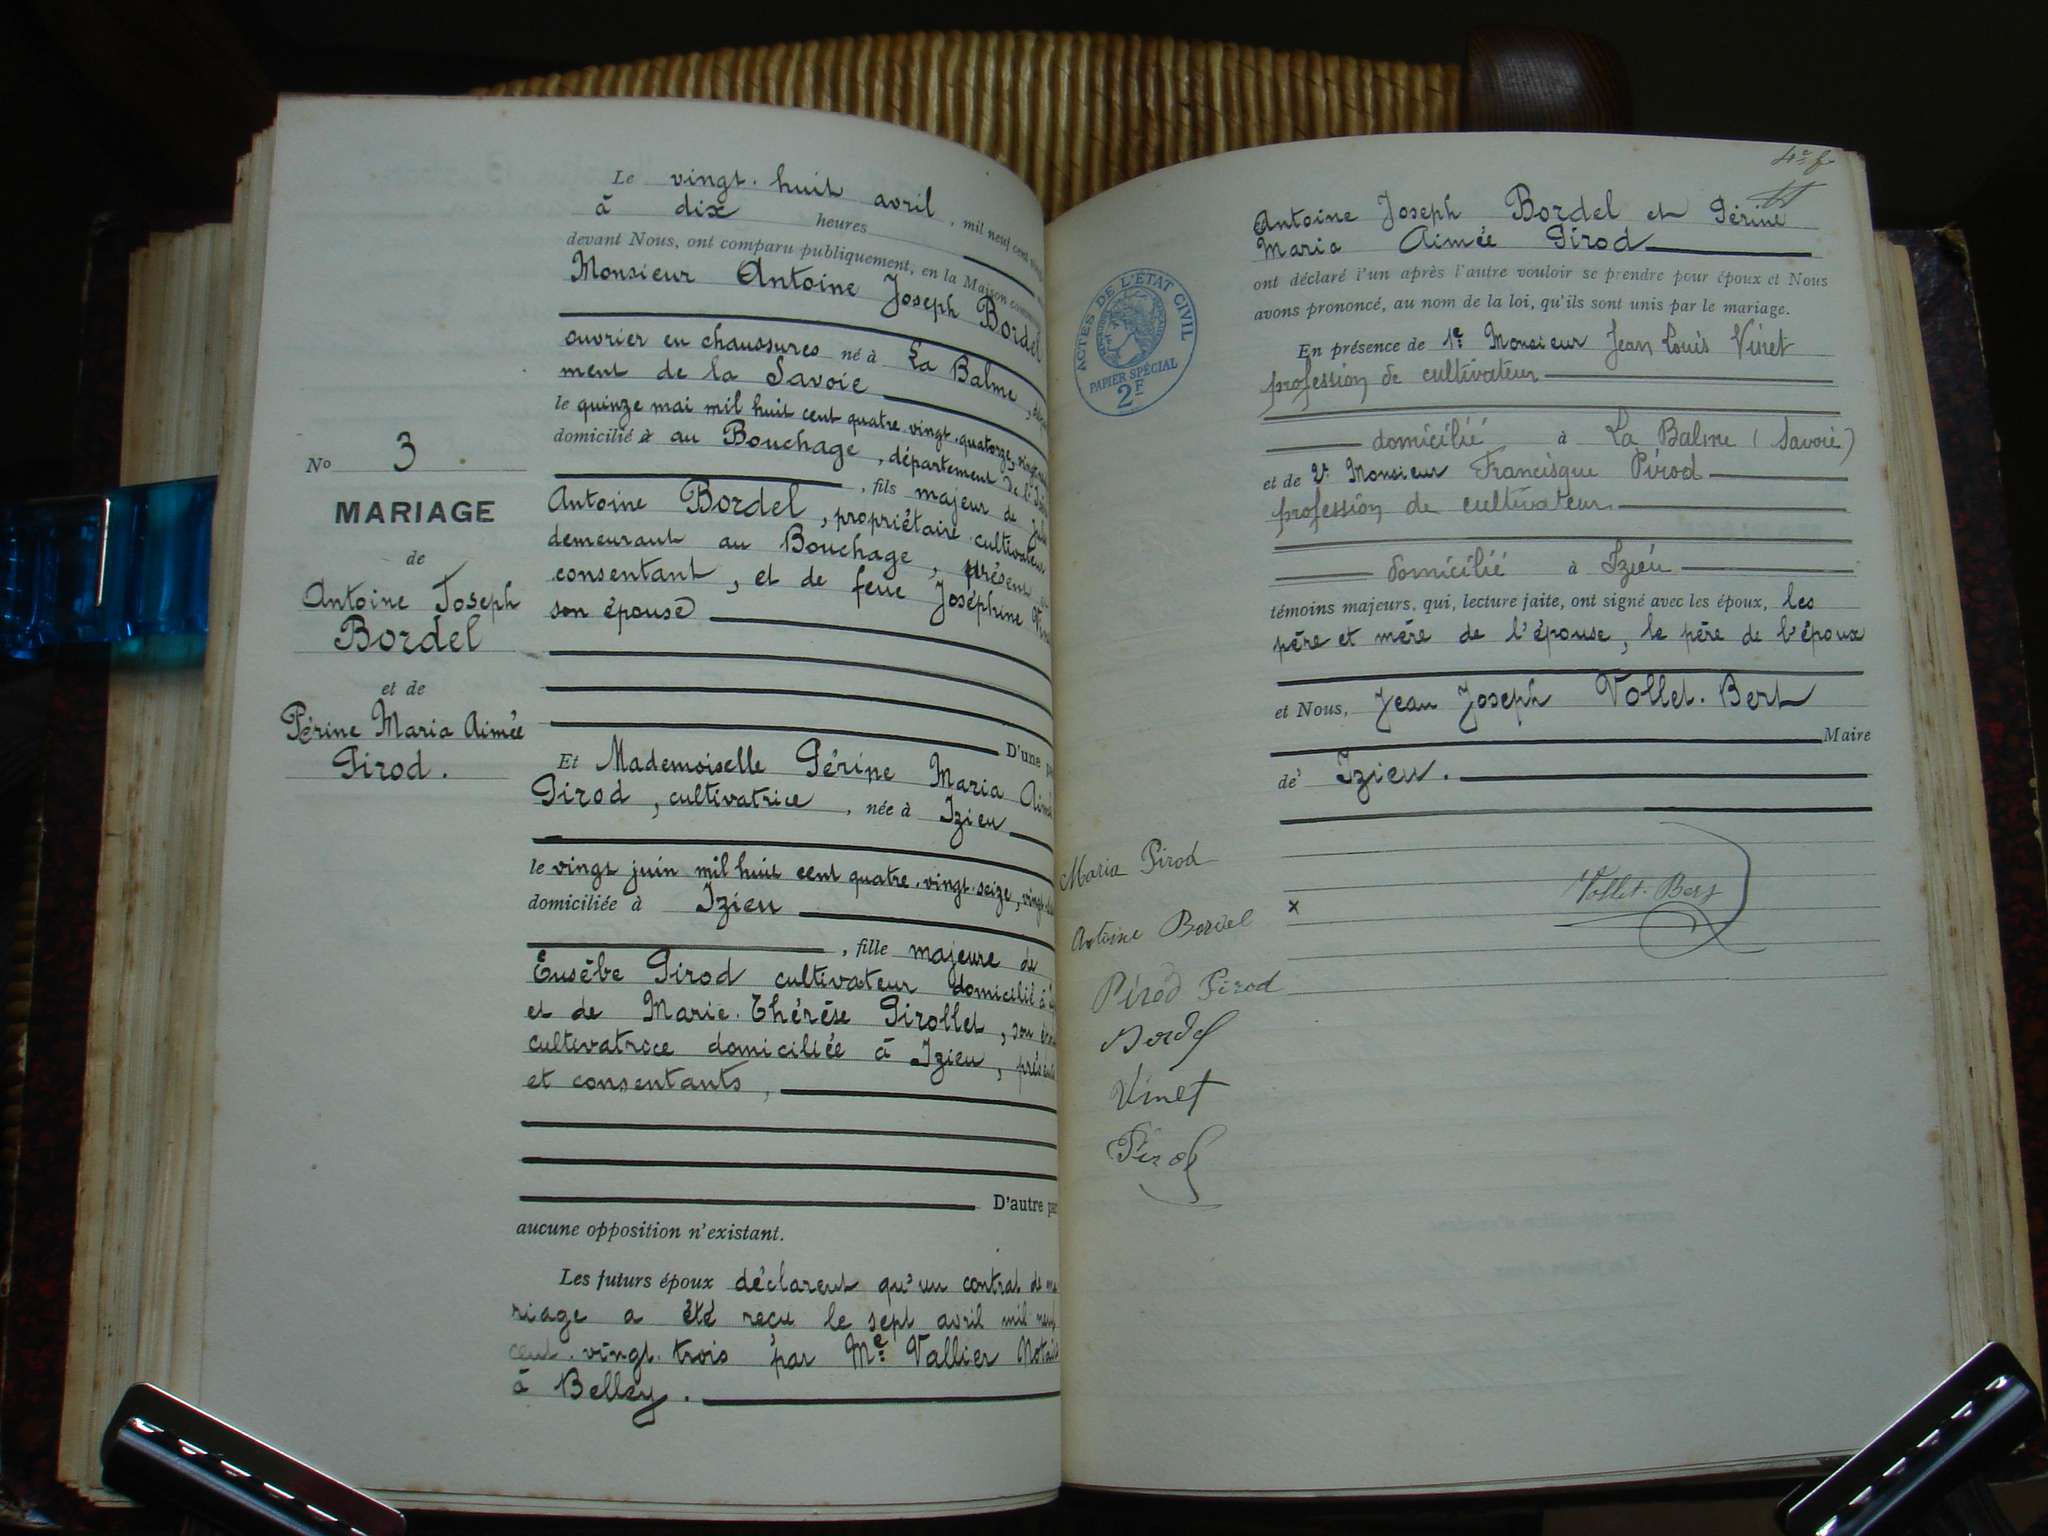 Le vingt-huit avril, mil neuf cent vingt
à dix heures
devant Nous, ont comparu publiquement, en la Maison commune
Monsieur Antoine Joseph Bordel
ouvrier en chaussures né à La Balme, dépar
ment de la Savoie
le quinze mai mil huit cent quatre vingt-quatorze, vingt
domicilié à au Bouchage, département de l'Isère
, fils majeur de
Antoine Bordel, propriétaire cultivateur
demeurant au Bouchage, présent
consentant, et de feue Joséphine Vinet
son épouse
D'une pa
No 3
MARIAGE
de
Antoine Joseph
Bordel
et de
Périne Maria Aimée
Pirod.
Et Mademoiselle Périne Maria Aimée
Pirod, cultivatrice, née à Izieu
le vingt juin mil huit cent quatre-vingt-seize, vingt
domiciliée à Izieu
, fille majeure de
Eusèbe Pirod cultivateur domicilié à
et de Marie-Thérèse Pirollet, son
cultivatrice domiciliée à Izieu, présents
et consentants,
D'autre par
aucune opposition n'existant.
Les futurs époux déclarent qu'un contrat de ma
riage a été reçu le sept avril mil neuf
cent-vingt-trois par Me Vallier Notaire
à Belley.
4e f
Antoine Joseph Bordel et Périne
Maria Aimée Pirod
ont déclaré l'un après l'autre vouloir se prendre pour époux et Nous
avons prononcé, au nom de la loi, qu'ils sont unis par le mariage.
ACTES DE L'ÉTAT CIVIL
PAPIER SPÉCIAL
2F
En présence de 1° Monsieur Jean Louis Vinet
profession de cultivateur
domicilié à La Balme (Savoie)
et de 2° Monsieur Francisque Pirod
profession de cultivateur
domicilié à Izieu
témoins majeurs, qui, lecture faite, ont signé avec les époux, les
père et mère de l'épouse, le père de l'époux
et Nous, Jean Joseph Vollet-Bert
Maire
de Izieu.
Maria Pirod
x
Vollet-Bert
Antoine Bordel
Pirod Pirod
Bordel
Vinet
Pirod